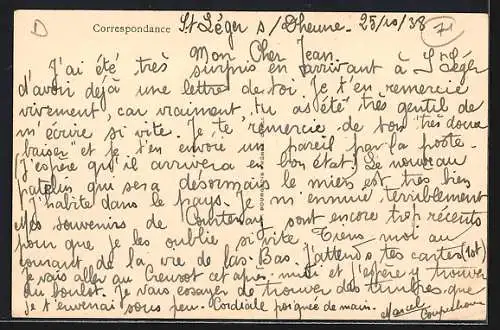 Correspondance St Léger s/Dheune. 25/10/38
71
D
Mon Cher Jean
J'ai été très surpris en arrivant à St Léger
d'avoir déjà une lettre de toi. Je t'en remercie
vivement, car vraiment, tu as été très gentil de
m'écrire si vite. Je te remercie de ton "très doux
baiser" et je t'en envoie un pareil par la poste.
J'espère qu'il arrivera en bon état. Le nouveau
patelin qui sera désormais le mien est très bien
J'habite dans le pays. Je m'ennuie terriblement
Mes souvenirs de Courtenay sont encore trop récents
pour que je les oublie si vite. Tiens moi au
courant de la vie de las-Bas. J'attends tes cartes (10f)
Je vais aller au Creusot cet après-midi et j'espère y trouver
du boulot. Je vais essayer de trouver des timbres que
je t'enverrai sous peu. Cordiale poignée de main.
Marcel